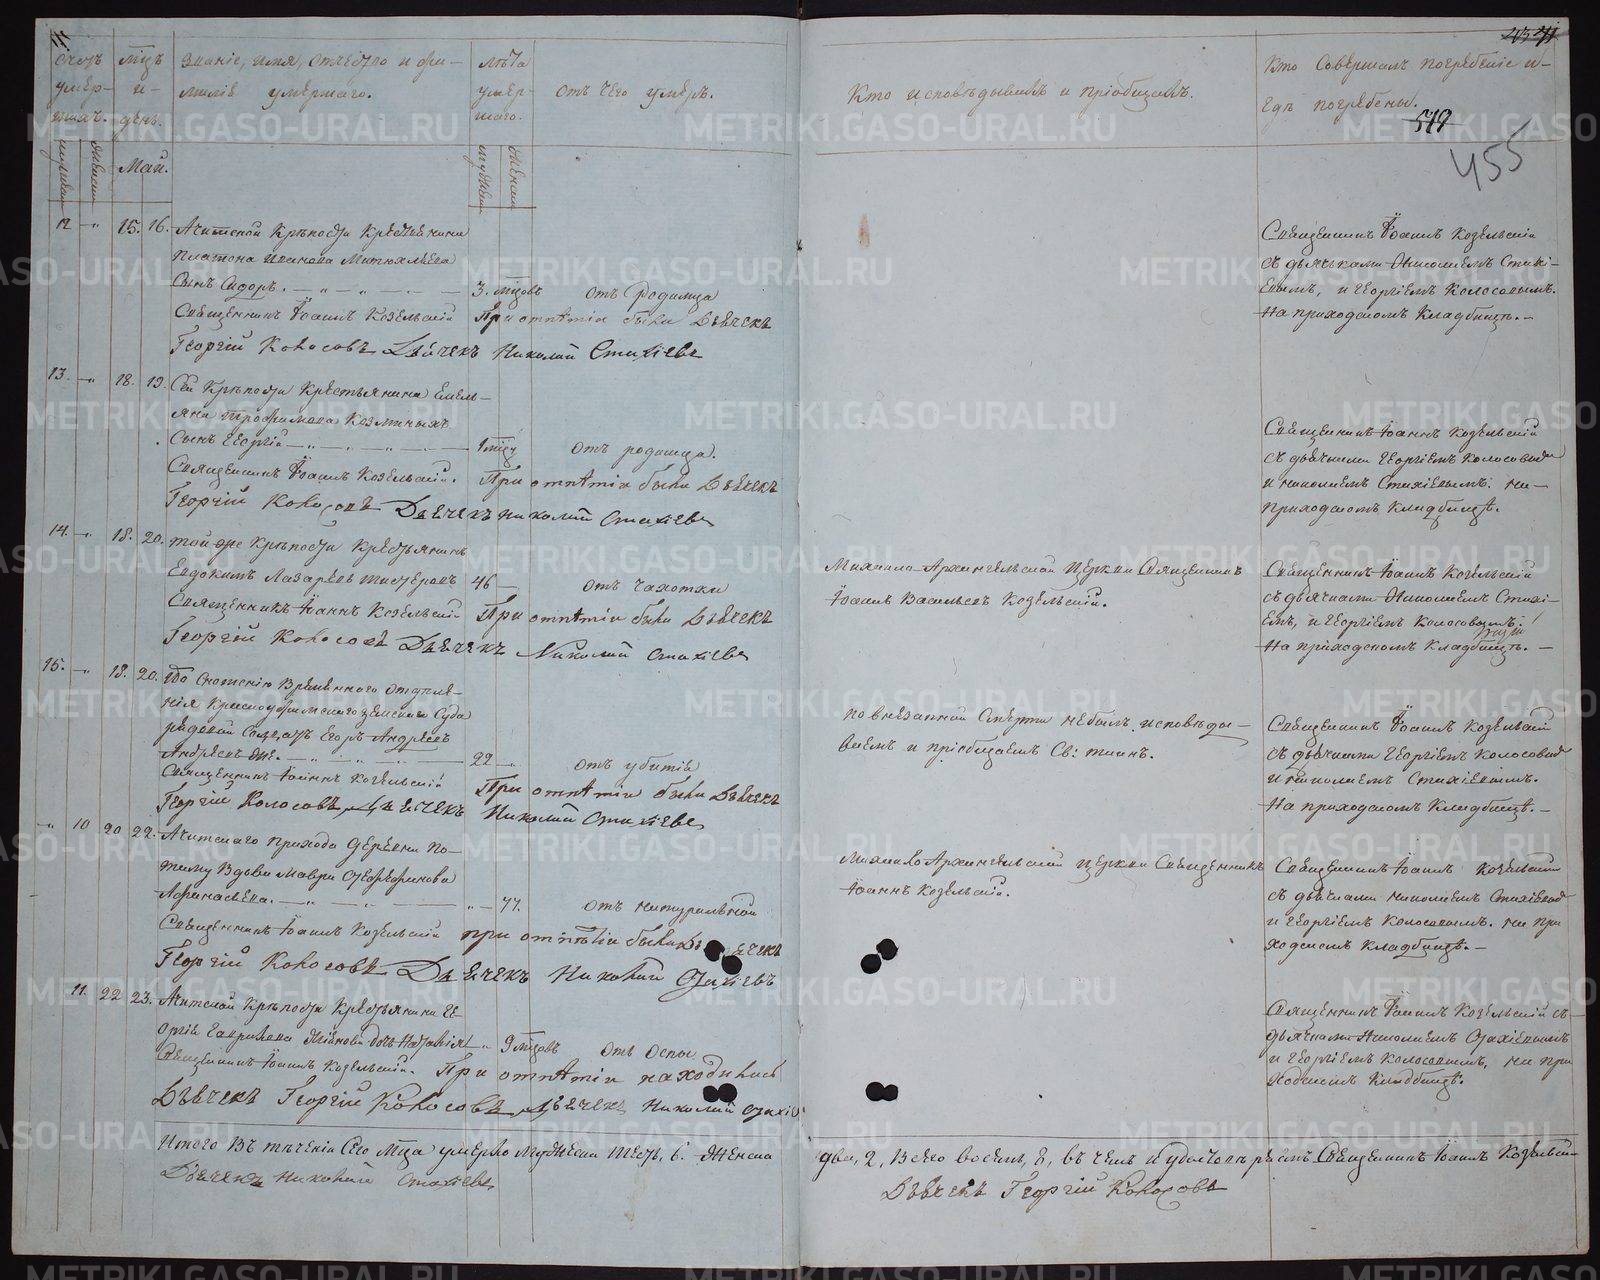 Счетъ умер-
шихъ.
Мѣцъ
и
день.
Званіе, имя, отчество и фа-
милія умершаго.
Лѣта
умер-
шаго.
отъ чего умеръ.
Кто исповѣдывалъ и пріобщалъ.
Кто совершалъ погребеніе и
гдѣ погребены.
519
455
Май.
12 " 15. 16. Ачитской крѣпости крестьянина
Платона Иванова
сынъ Сидоръ. 3. мѣцовъ отъ родимца
Священникъ Іоаннъ Козельскій При отпѣтіи были Дьячекъ
Георгій Колосовъ Дьячекъ Николай Стахіевъ
Священникъ Іоаннъ Козельскій
съ дьячками Николаемъ Стахі-
евымъ, и Георгіемъ Колосовымъ.
На приходскомъ кладбищѣ.
13. " 18. 19. крѣпости крестьянина Емель-
яна Трофимова Козминыхъ
сынъ Георгій 1 мѣцъ отъ родимца.
Священникъ Іоаннъ Козельскій. При отпѣтіи были Дьячекъ
Георгій Колосовъ Дьячекъ Николай Стахіевъ
Священникъ Іоаннъ Козельскій
съ дьячками Георгіемъ Колосовымъ
и Николаемъ Стахіевымъ. на
приходскомъ кладбищѣ.
14. " 18. 20. той же крѣпости крестьянинъ
Евдокимъ Лазаревъ 46 отъ чахотки
Священникъ Іоаннъ Козельскій При отпѣтіи были Дьячекъ
Георгій Колосовъ Дьячекъ Николай Стахіевъ
Михаило-Архангельской церкви Священникъ
Іоаннъ Васильевъ Козельскій.
Священникъ Іоаннъ Козельскій
съ дьячками Николаемъ Стахі-
евымъ, и Георгіемъ Колосовымъ.
На приходскомъ кладбищѣ.
15. " 18. 20. По сношенію временнаго отдѣле-
нія Красноуфимскаго земскаго суда
рядовой солдатъ Егоръ Андреевъ
Андреевъ же. 22 отъ убитія
Священникъ Іоаннъ Козельскій При отпѣтіи были Дьячекъ
Георгій Колосовъ Дьячекъ Николай Стахіевъ
по внезапной смерти не былъ исповѣды-
ваемъ и пріобщаемъ Св: таинъ.
Священникъ Іоаннъ Козельскій
съ дьячками Георгіемъ Колосовымъ
и Николаемъ Стахіевымъ.
На приходскомъ кладбищѣ.
" 10 20 22. Ачитскаго прихода деревни
вдова Мавра
Афанасьева. " 77. отъ натуральной
Священникъ Іоаннъ Козельскій при отпѣтіи были Дьячекъ
Георгій Колосовъ Дьячекъ Николай Стахіевъ
Михаило Архангельской церкви Священникъ
Іоаннъ Козельскій.
Священникъ Іоаннъ Козельскій
съ дьячками Николаемъ Стахіевымъ
и Георгіемъ Колосовымъ. на при
ходскомъ кладбищѣ.
11. 22 23. Ачитской крѣпости крестьянина Ге-
оргія Гаврилова дочь Наталія " 9 мѣцовъ отъ оспы
Священникъ Іоаннъ Козельскій. При отпѣтіи находились
Дьячекъ Георгій Колосовъ Дьячекъ Николай Стахіевъ
Священникъ Іоаннъ Козельскій съ
дьячками Николаемъ Стахіевымъ
и Георгіемъ Колосовымъ, на при
ходскомъ кладбищѣ.
Итого въ теченіи сего мѣца умерло мужеска шесть, 6. женска
два, 2, всего восемь, 8, въ чемъ и удостовѣряемъ Священникъ Іоаннъ Козельскій
Дьячекъ Николай Стахіевъ
Дьячекъ Георгій Колосовъ
METRIKI.GASO-URAL.RU